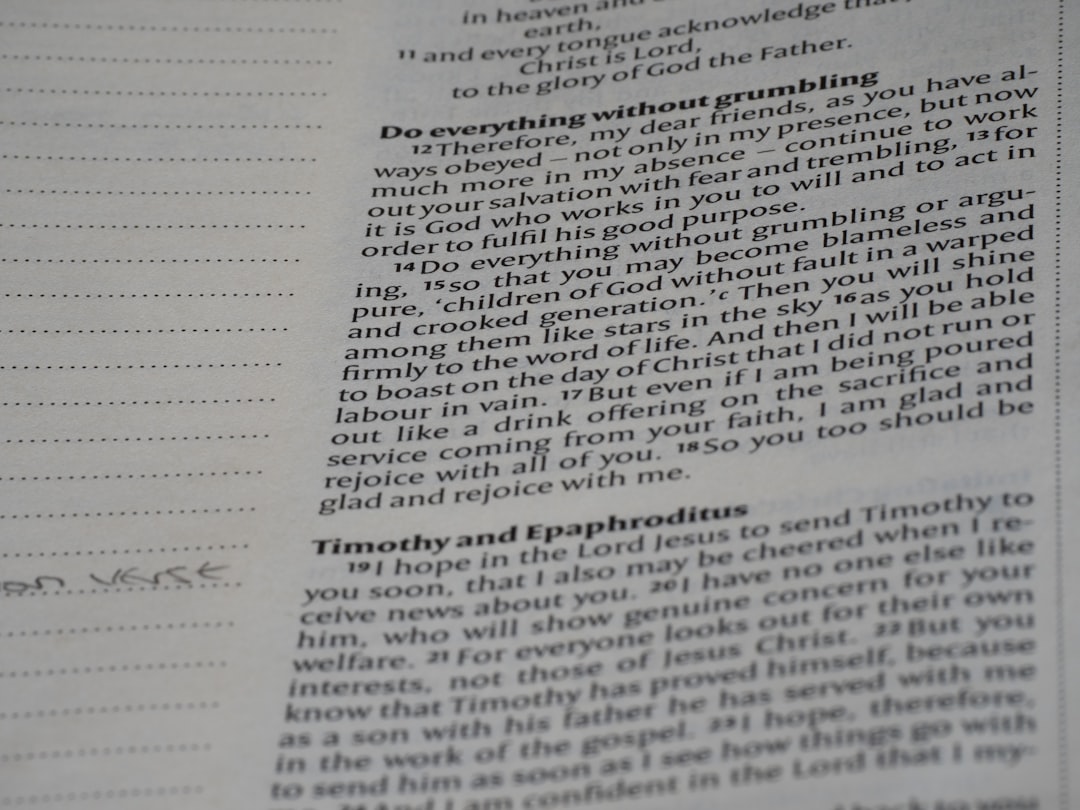 in heaven and
earth,
11 and every tongue acknowledge that
Christ is Lord,
to the glory of God the Father.
Do everything without grumbling
12 Therefore, my dear friends, as you have al-
ways obeyed – not only in my presence, but now
much more in my absence – continue to work
out your salvation with fear and trembling, 13 for
it is God who works in you to will and to act in
order to fulfil his good purpose.
14 Do everything without grumbling or argu-
ing, 15 so that you may become blameless and
pure, ‘children of God without fault in a warped
and crooked generation.’c Then you will shine
among them like stars in the sky 16 as you hold
firmly to the word of life. And then I will be able
to boast on the day of Christ that I did not run or
labour in vain. 17 But even if I am being poured
out like a drink offering on the sacrifice and
service coming from your faith, I am glad and
rejoice with all of you. 18 So you too should be
glad and rejoice with me.
Timothy and Epaphroditus
19 I hope in the Lord Jesus to send Timothy to
you soon, that I also may be cheered when I re-
ceive news about you. 20 I have no one else like
him, who will show genuine concern for your
welfare. 21 For everyone looks out for their own
interests, not those of Jesus Christ. 22 But you
know that Timothy has proved himself, because
as a son with his father he has served with me
in the work of the gospel. 23 I hope, therefore,
to send him as soon as I see how things go with
And I am confident in the Lord that I my-
back to you
verse